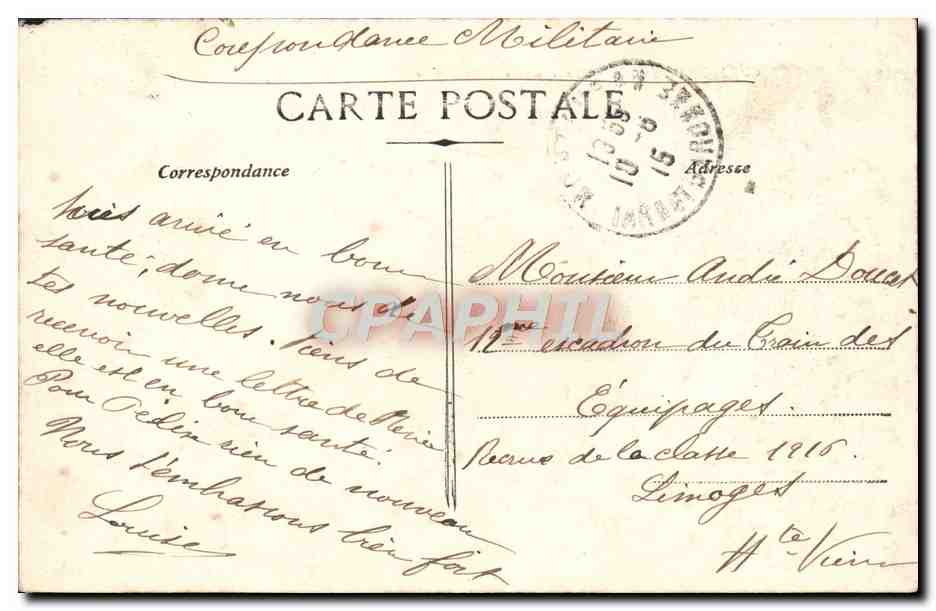 Corespondance Militaire
CARTE POSTALE
Correspondance
Adresse
10 55
10 - 6
15
suis arrivé en bonne
santé, donne nous de
tes nouvelles. Viens de
recevoir une lettre de
elle est en bonne santé.
Pour rien de nouveau
Nous t'embrassons bien fort
Louise
Monsieur André Doucet
12me escadron du Train des
Équipages.
Recrue de la classe 1916.
Limoges
Hte Vienne
CPAPHIL